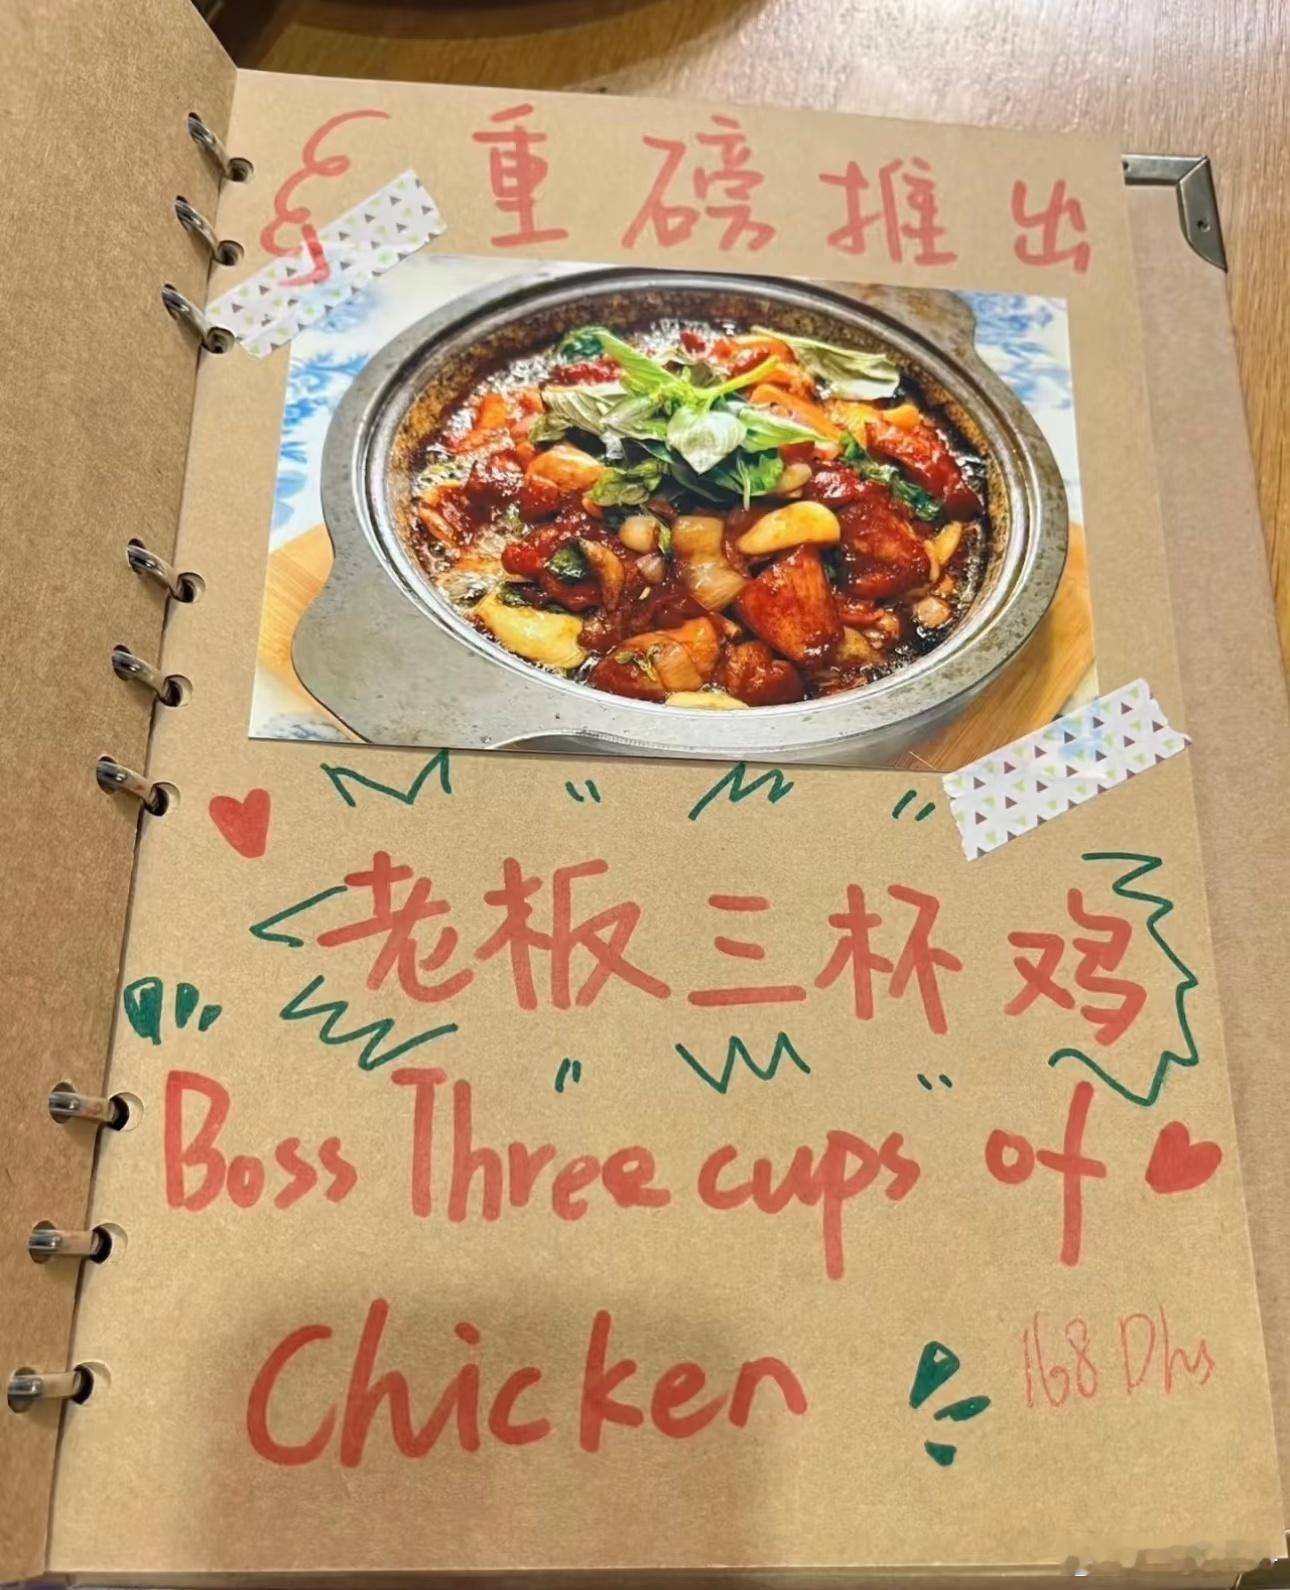 重磅推出
老板三杯鸡
Boss Three cups of
Chicken
168 Dhs